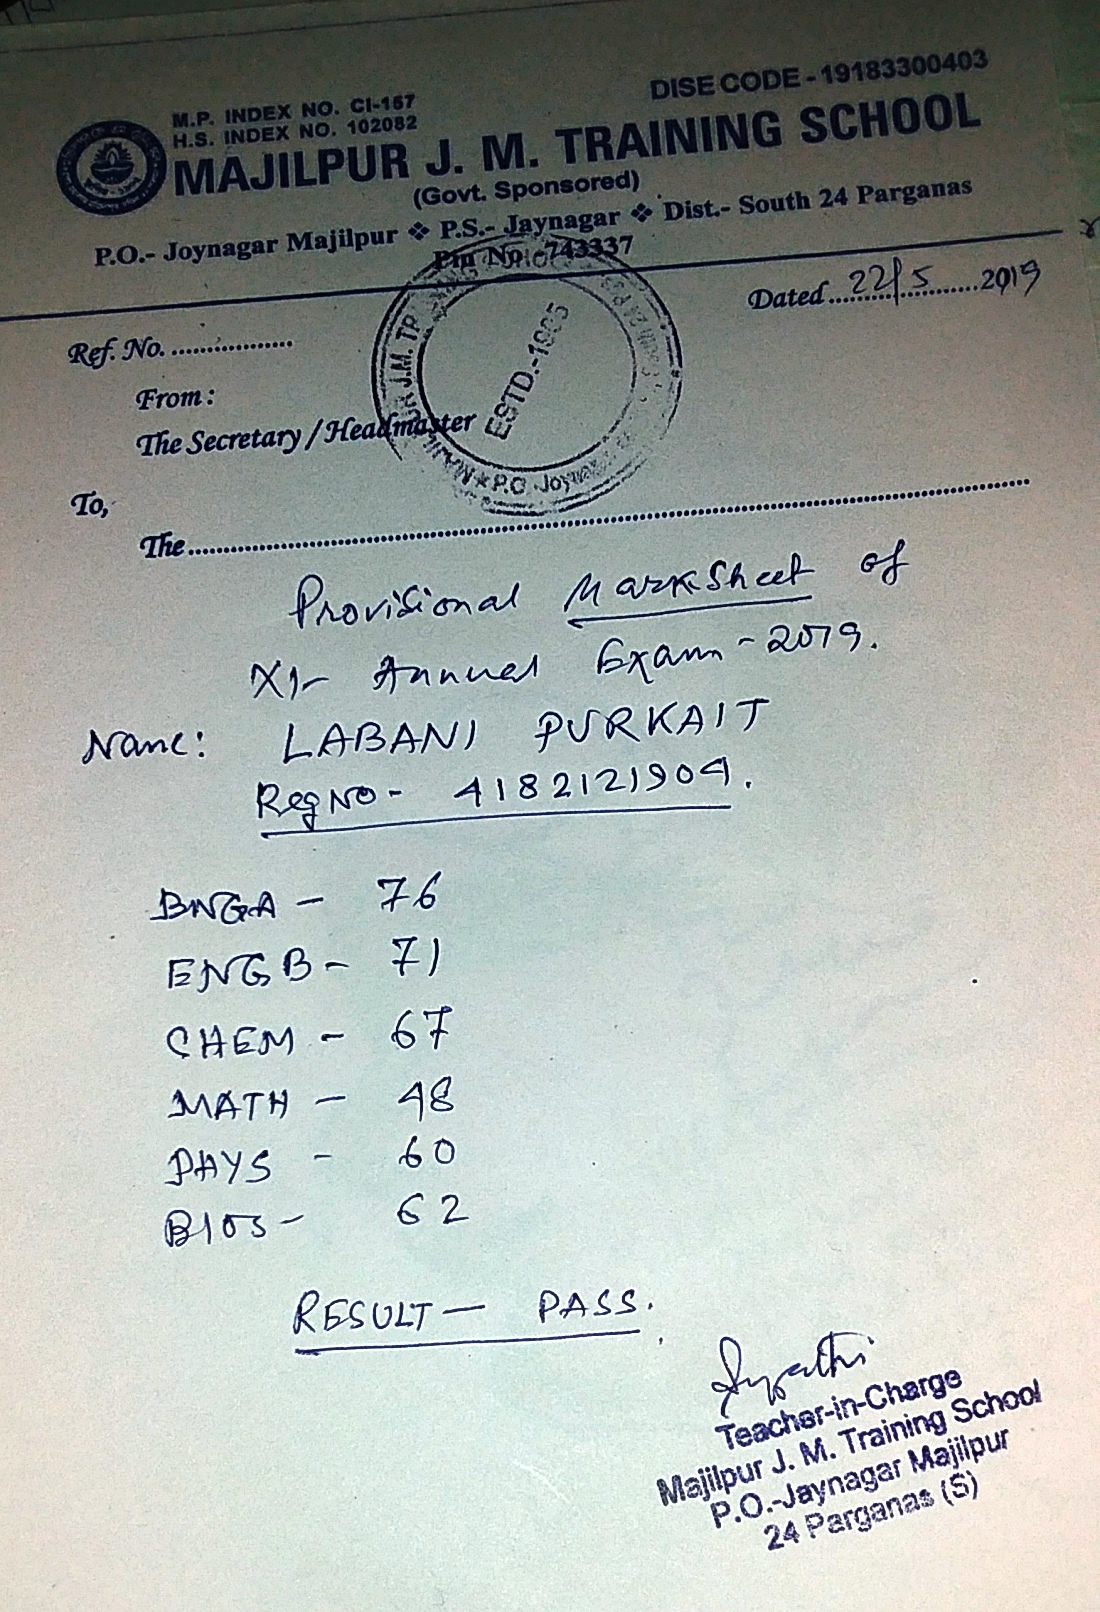 M.P. INDEX NO. CI-157
H.S. INDEX NO. 102082
DISE CODE - 19183300403
MAJILPUR J. M. TRAINING SCHOOL
(Govt. Sponsored)
P.O.- Joynagar Majilpur ❖ P.S.- Jaynagar ❖ Dist.- South 24 Parganas
Pin No.-743337
Dated 22/5 2019
Ref. No.
From :
The Secretary / Headmaster
ESTD.-1905
P.O. Joynagar
To,
The
Provisional MarkSheet of
XI- Annual Exam - 2019.
Name: LABANI PURKAIT
Reg No - 4182121904.
BNGA - 76
ENGB - 71
CHEM - 67
MATH - 48
PHYS - 60
BIOS - 62
RESULT — PASS.
Teacher-in-Charge
Majilpur J. M. Training School
P.O.-Jaynagar Majilpur
24 Parganas (S)